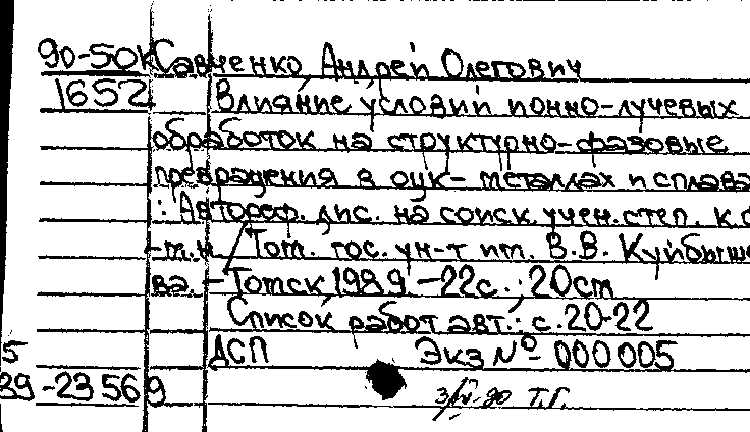 90-50к Савченко, Андрей Олегович
1652 Влияние условий ионно-лучевых
обработок на структурно-фазовые
превращения в оцк-металлах и сплава
: Автореф. дис. на соиск. учен. степ. к.ф
-м.н. / Том. гос. ун-т им. В.В. Куйбыше
ва. - Томск, 1989. - 22с. ; 20см
Список работ авт.: с. 20-22
5 ДСП Экз № 000005
39-23569
Т.Г.